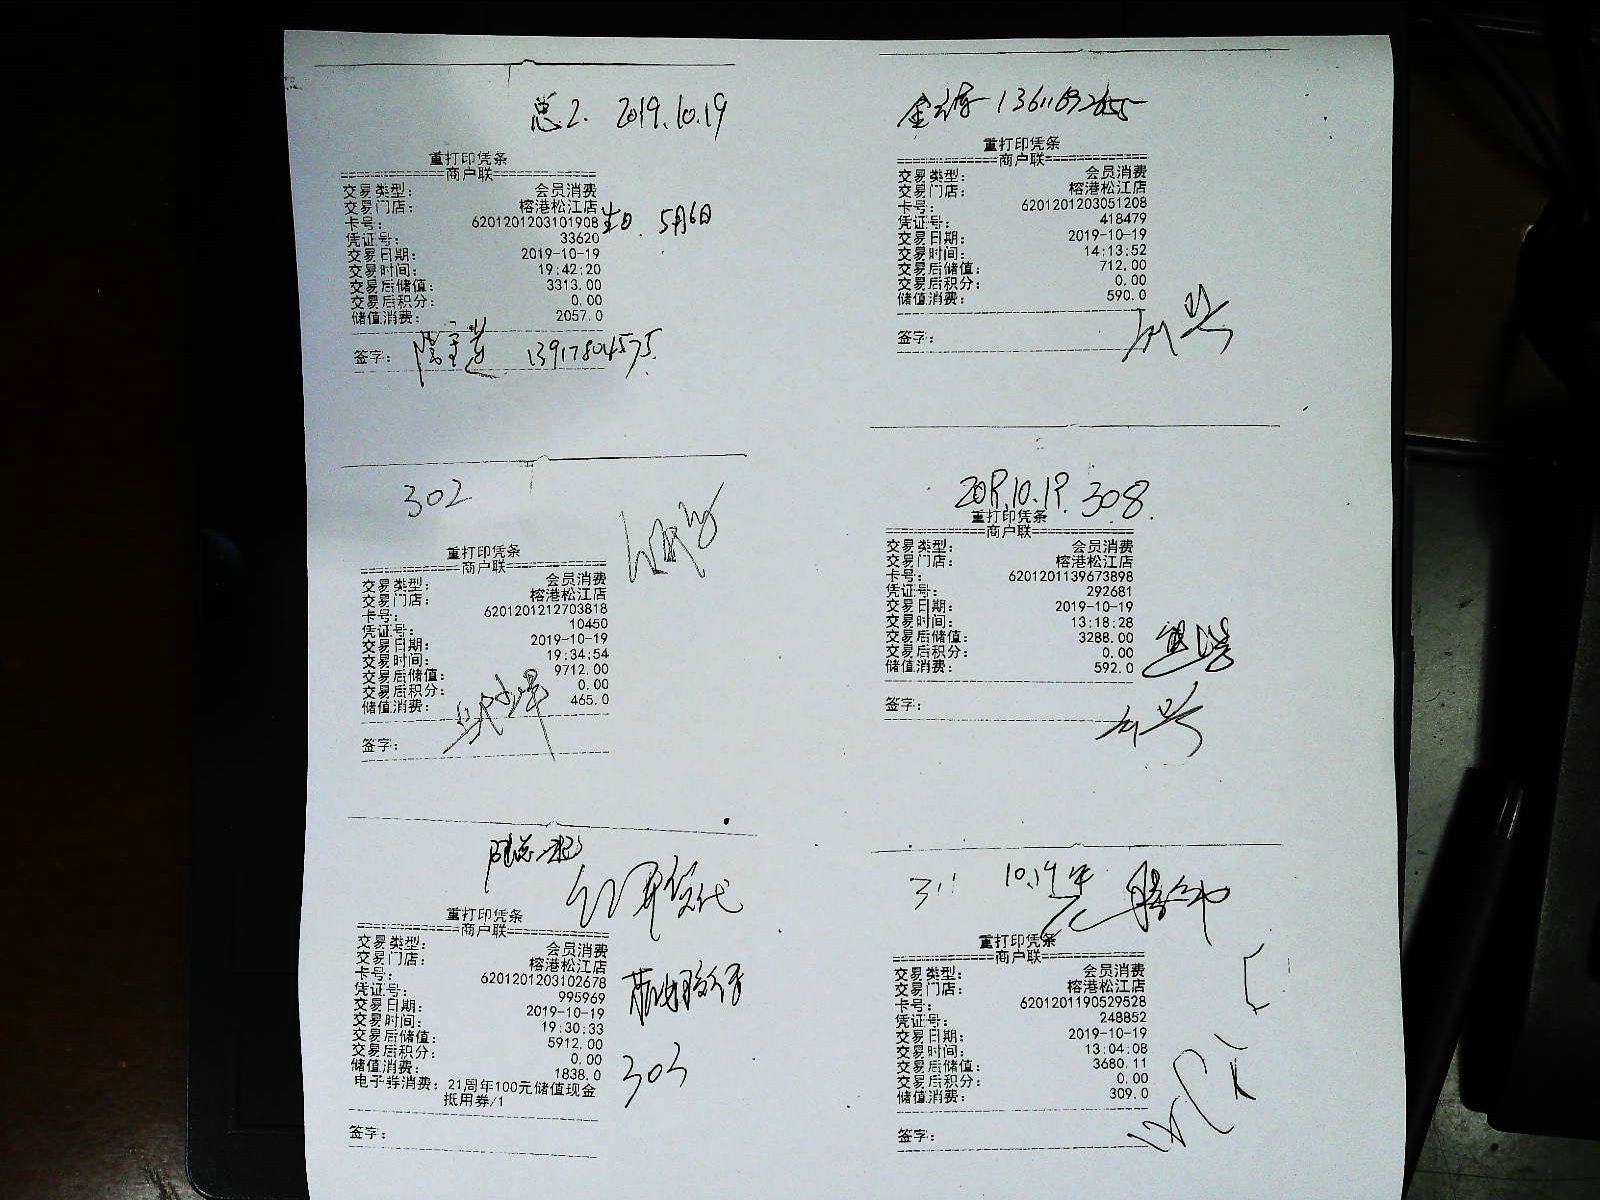 总2. 2019.10.19
重打印凭条
================商户联================
交易类型: 会员消费
交易门店: 榕港松江店
卡号: 6201201203101908 生日 5月6日
凭证号: 33620
交易日期: 2019-10-19
交易时间: 19:42:20
交易后储值: 3313.00
交易后积分: 0.00
储值消费: 2057.0
签字: 13917804575
重打印凭条
================商户联================
交易类型: 会员消费
交易门店: 榕港松江店
卡号: 6201201203051208
凭证号: 418479
交易日期: 2019-10-19
交易时间: 14:13:52
交易后储值: 712.00
交易后积分: 0.00
储值消费: 590.0
签字:
302
重打印凭条
================商户联================
交易类型: 会员消费
交易门店: 榕港松江店
卡号: 6201201212703818
凭证号: 10450
交易日期: 2019-10-19
交易时间: 19:34:54
交易后储值: 9712.00
交易后积分: 0.00
储值消费: 465.0
签字:
2019.10.19 308.
重打印凭条
================商户联================
交易类型: 会员消费
交易门店: 榕港松江店
卡号: 6201201139673898
凭证号: 292681
交易日期: 2019-10-19
交易时间: 13:18:28
交易后储值: 3288.00
交易后积分: 0.00
储值消费: 592.0
签字:
重打印凭条
================商户联================
交易类型: 会员消费
交易门店: 榕港松江店
卡号: 6201201203102678
凭证号: 995969
交易日期: 2019-10-19
交易时间: 19:30:33
交易后储值: 5912.00
交易后积分: 0.00
储值消费: 1838.0
303
电子券消费: 21周年100元储值现金
抵用券/1
签字:
311 10.19 午
重打印凭条
================商户联================
交易类型: 会员消费
交易门店: 榕港松江店
卡号: 6201201190529528
凭证号: 248852
交易日期: 2019-10-19
交易时间: 13:04:08
交易后储值: 3680.11
交易后积分: 0.00
储值消费: 309.0
签字: